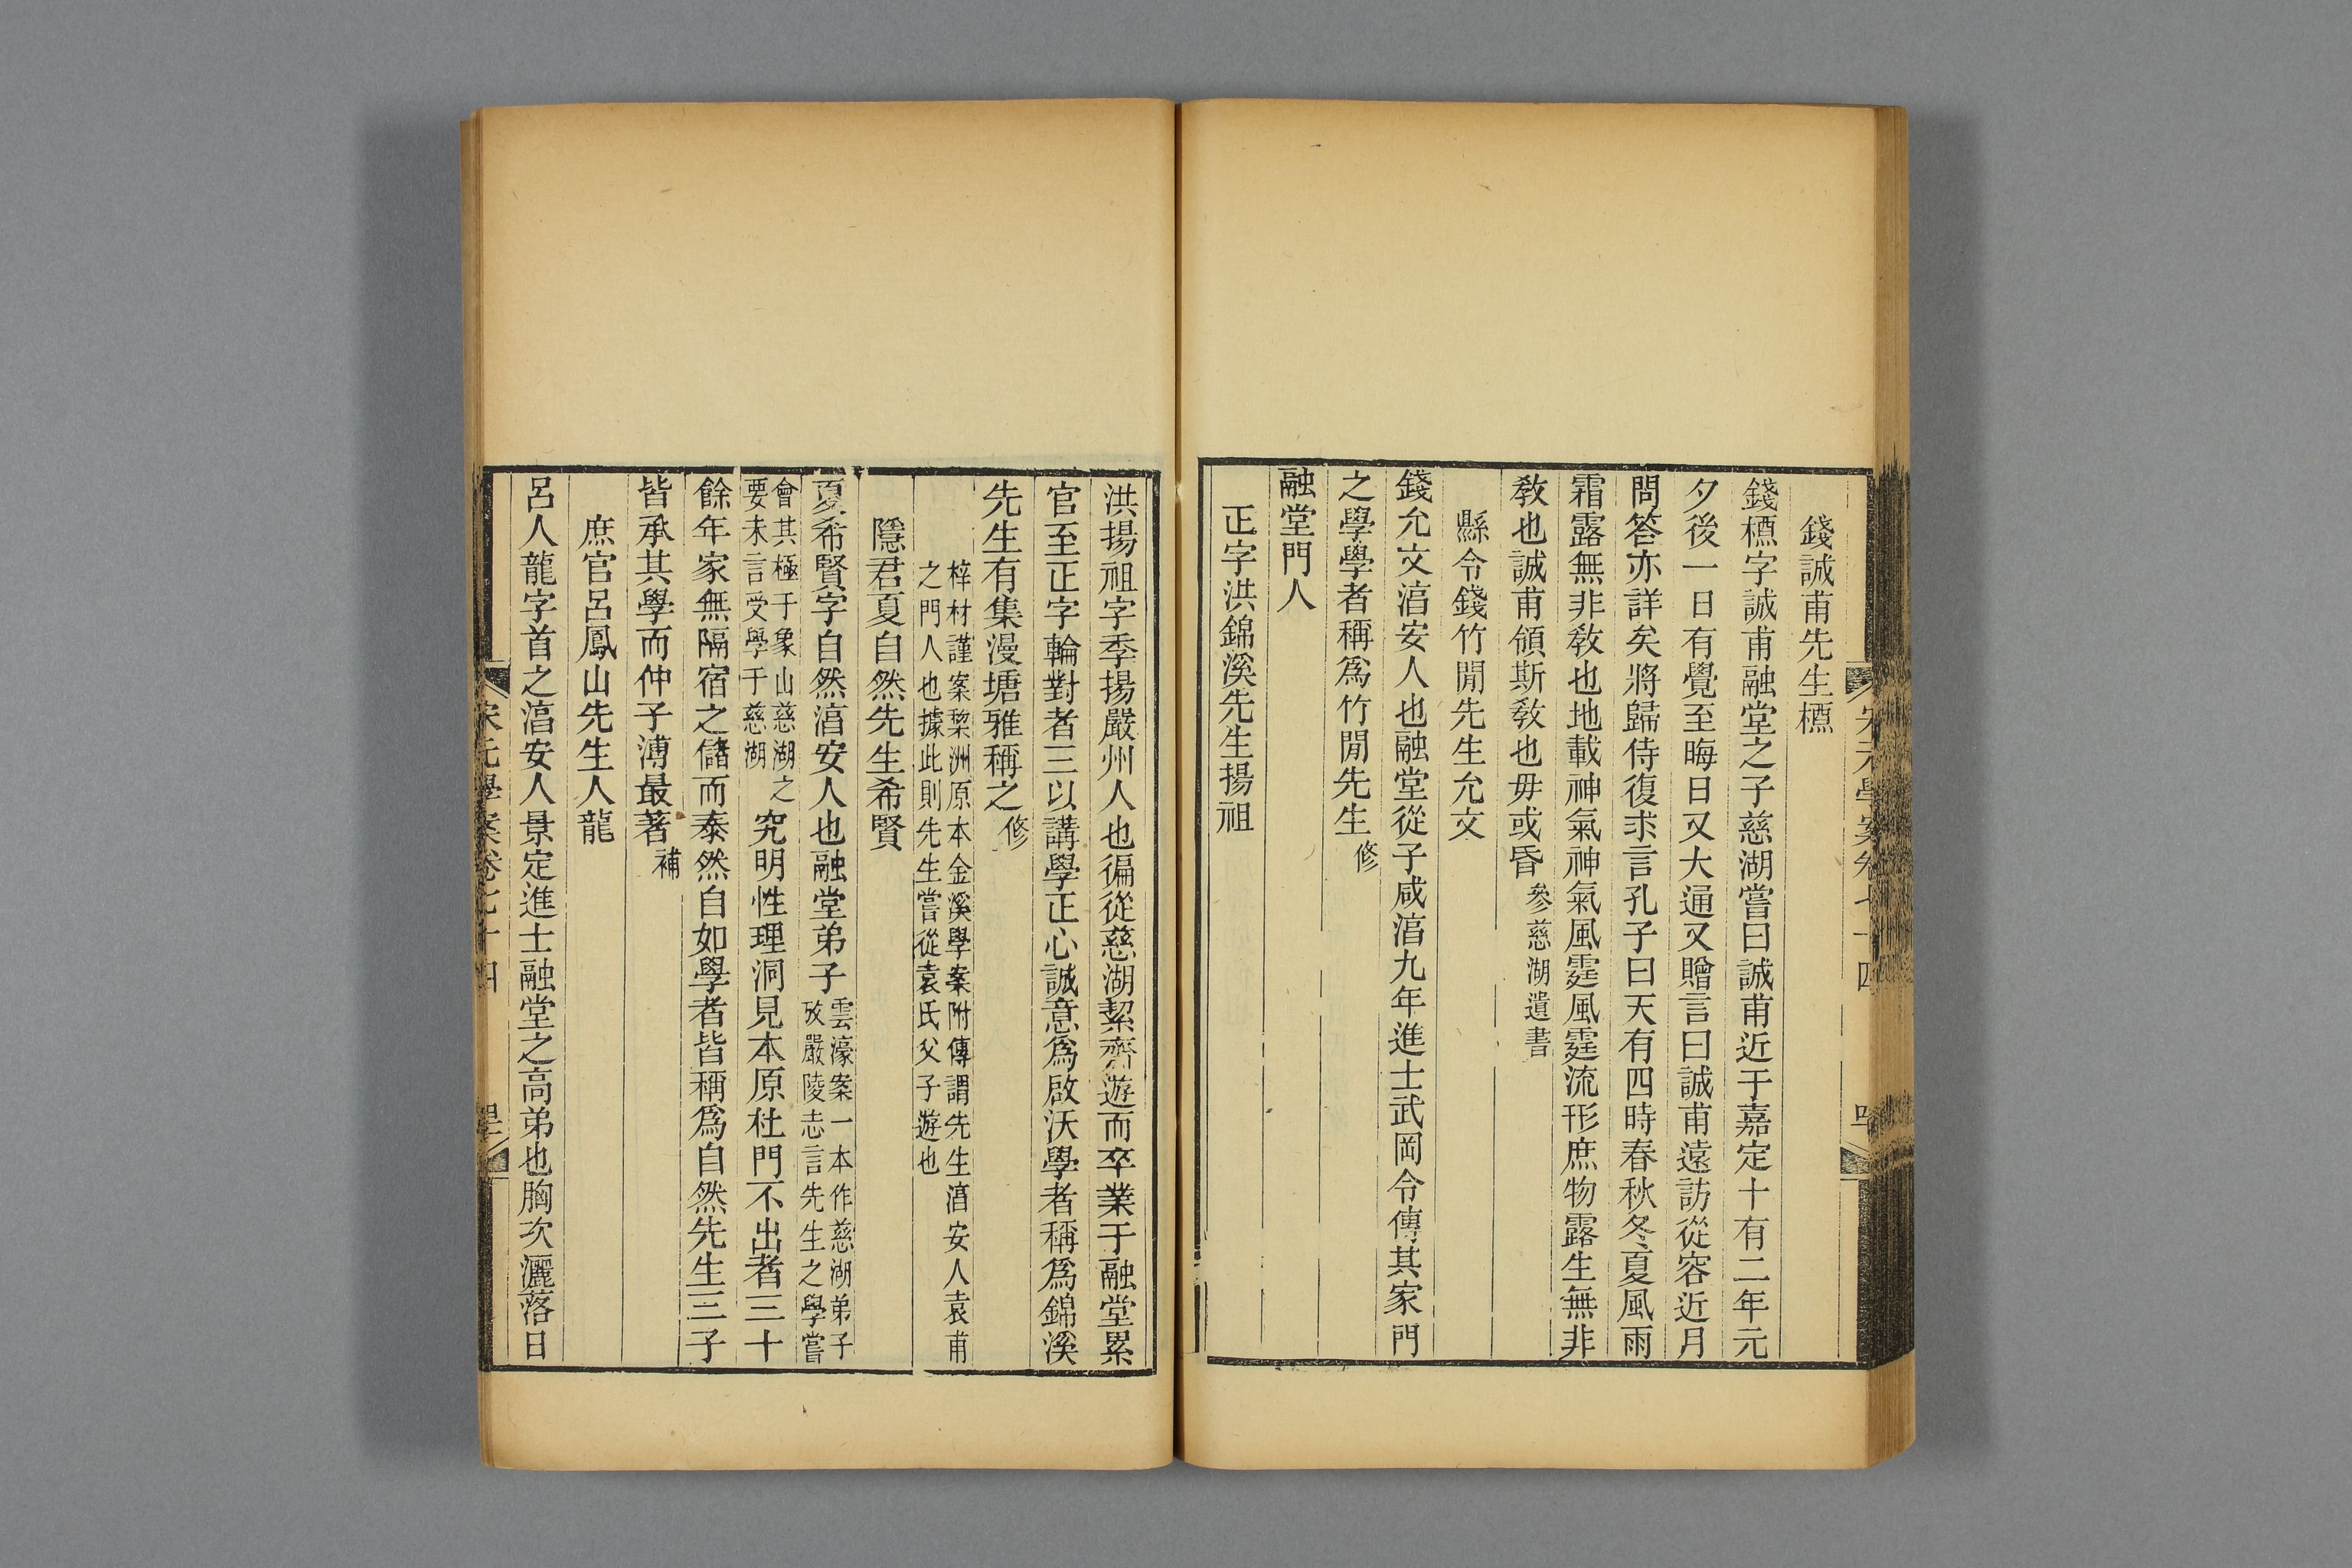 錢誠甫先生槱
錢槱字誠甫融堂之子慈湖嘗曰誠甫近于嘉定十有二年元
夕後一日有覺至晦日又大通又贈言曰誠甫遠訪從容近月
問答亦詳矣將歸侍復求言孔子曰天有四時春秋冬夏風雨
霜露無非敎也地載神氣神氣風霆風霆流形庶物露生無非
敎也誠甫領斯敎也毋或昏參慈湖遺書
縣令錢竹閒先生允文
錢允文湻安人也融堂從子咸湻九年進士武岡令傳其家門
之學學者稱爲竹閒先生修
融堂門人
正字洪錦溪先生揚祖
宋元學案卷七十四
洪揚祖字季揚嚴州人也徧從慈湖絜齋遊而卒業于融堂累
官至正字輪對者三以講學正心誠意爲啟沃學者稱爲錦溪
先生有集漫塘雅稱之修
梓材謹案棃洲原本金溪學案附傳謂先生湻安人袁甫
之門人也據此則先生嘗從袁氏父子遊也
隱君夏自然先生希賢
夏希賢字自然湻安人也融堂弟子雲濠案一本作慈湖弟子
攷嚴陵志言先生之學嘗
會其極于象山慈湖之
要未言受學于慈湖究明性理洞見本原杜門不出者三十
餘年家無隔宿之儲而泰然自如學者皆稱爲自然先生三子
皆承其學而仲子溥最著補
庶官呂鳳山先生人龍
呂人龍字首之湻安人景定進士融堂之高弟也胸次灑落日
宋元學案卷七十四